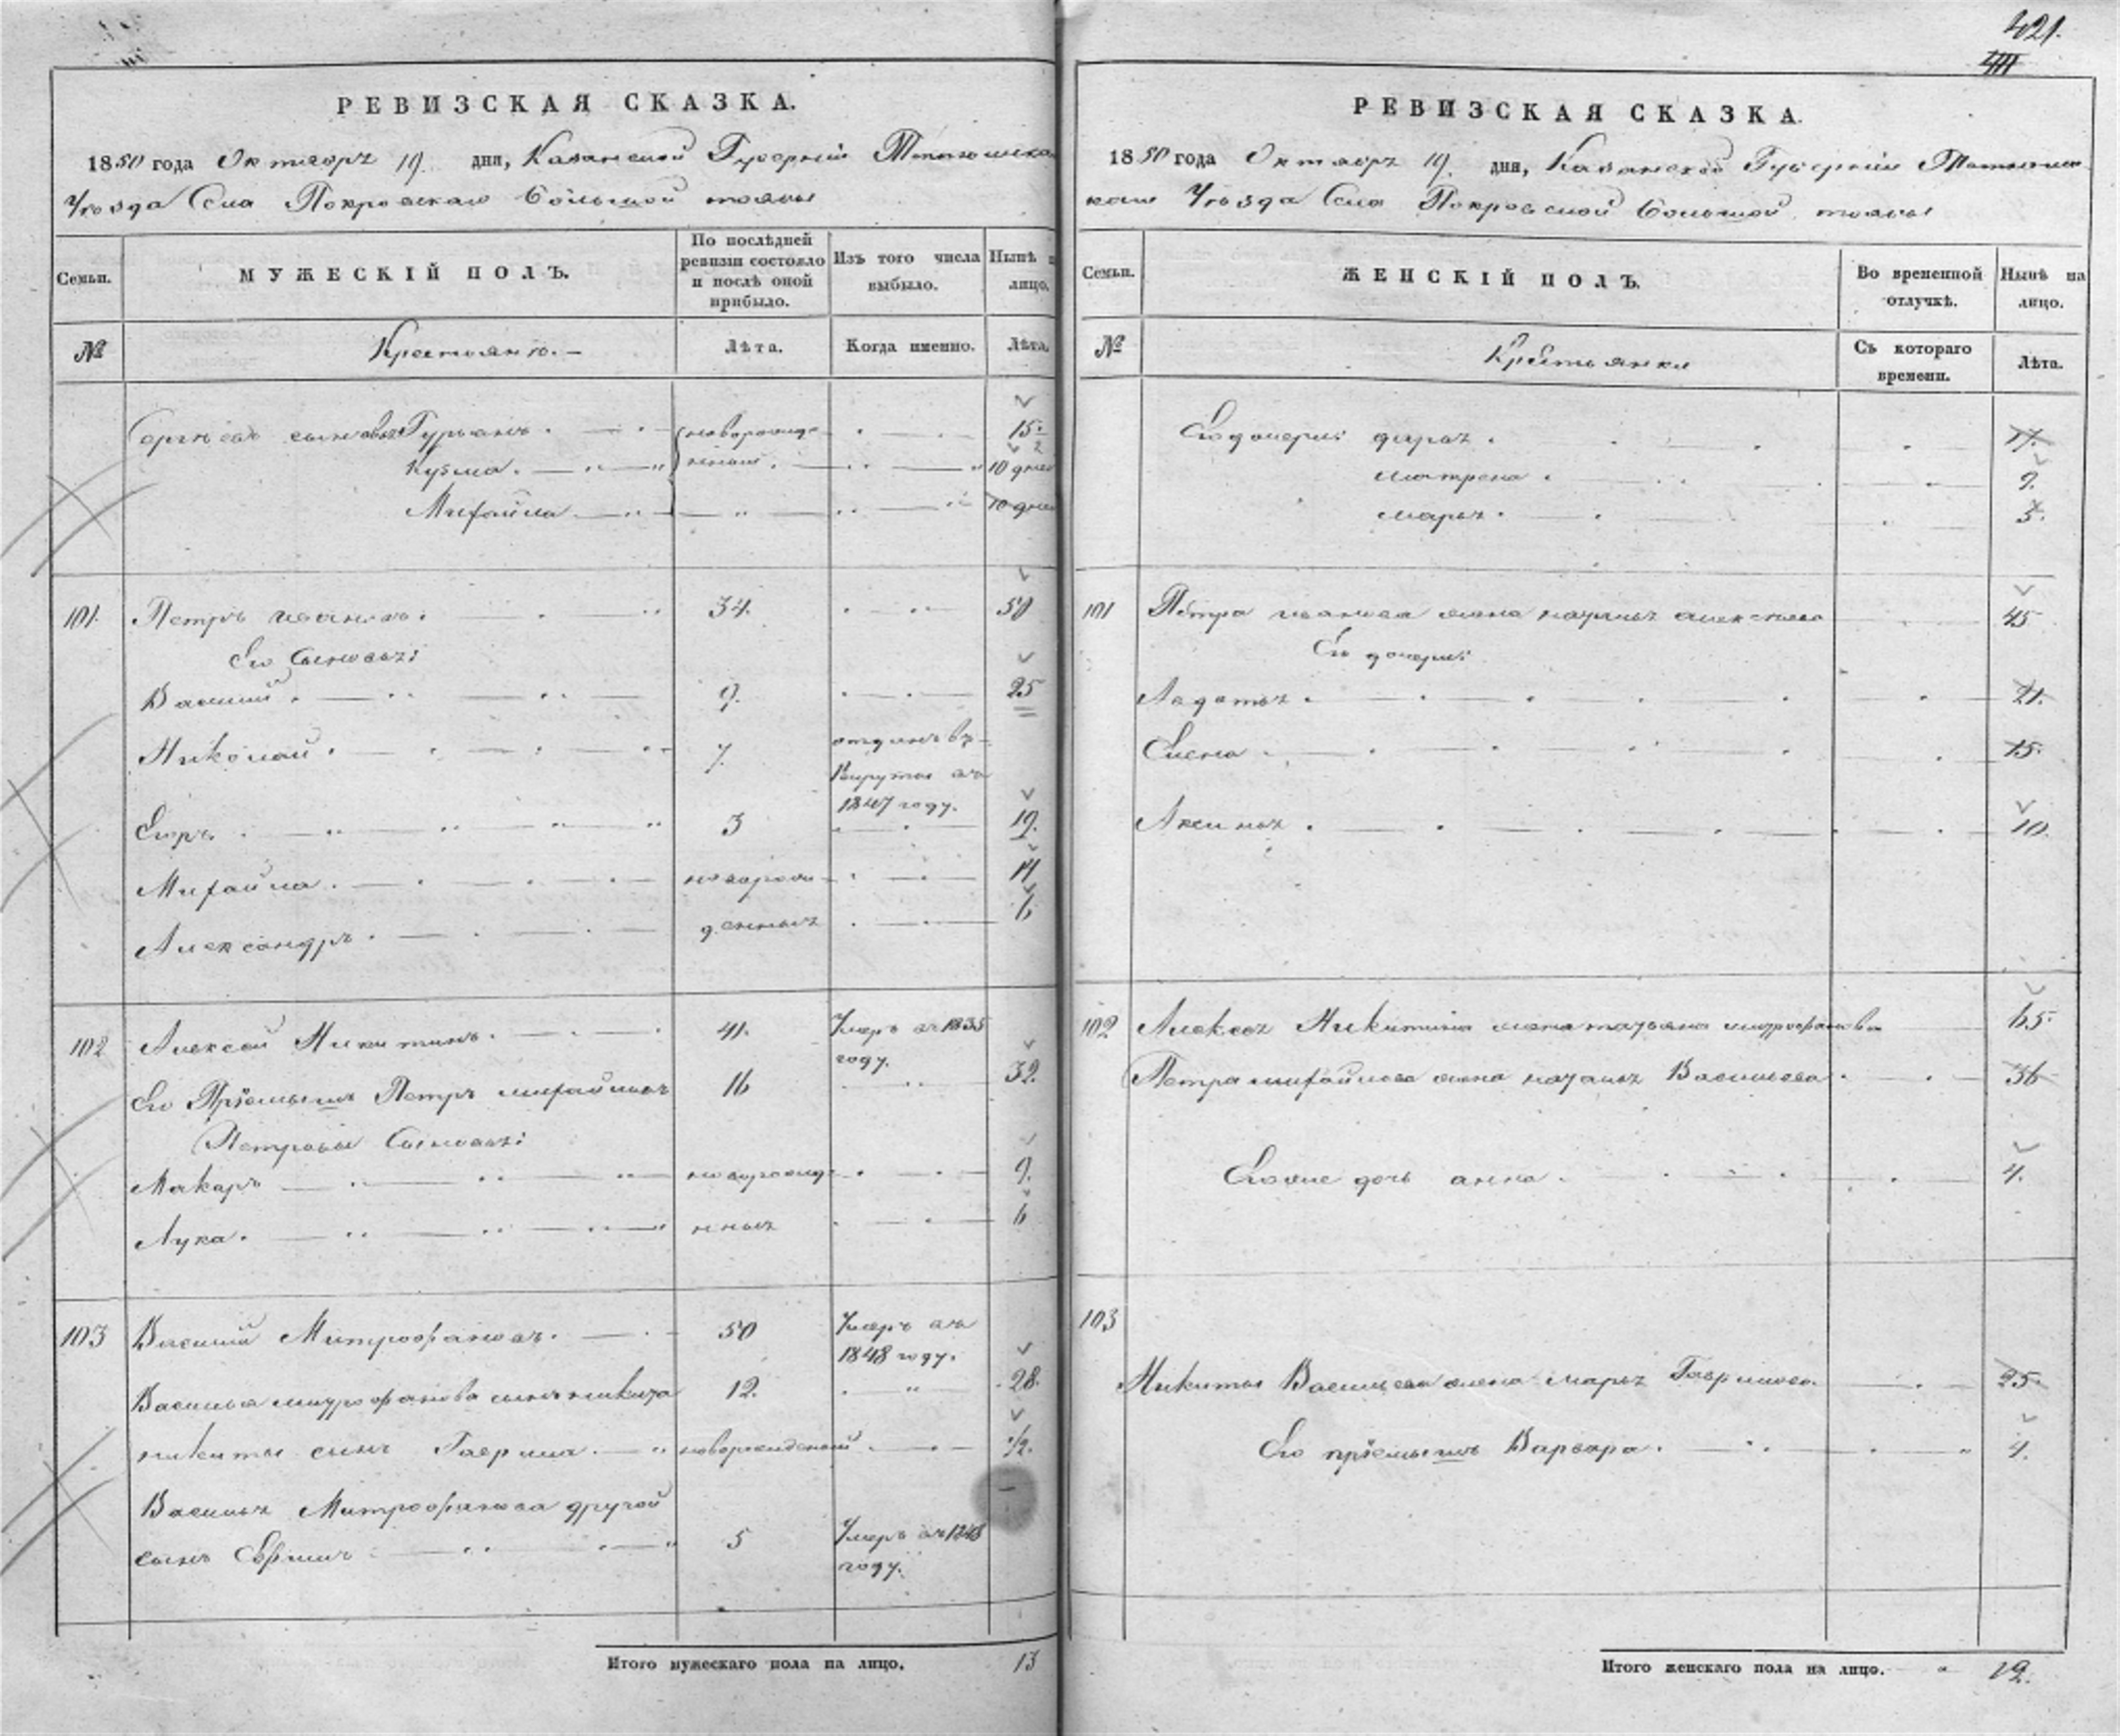 421.
РЕВИЗСКАЯ СКАЗКА.
1850 года Октября 19. дня, Казанской Губерніи Тетюшска
Уѣзда Села Покровскаго Большой тоявы
Семьи.
МУЖЕСКІЙ ПОЛЪ.
По послѣдней ревизіи состояло и послѣ оной прибыло.
Изъ того числа выбыло.
Нынѣ на лицо.
№
Крестьяне.
Лѣта.
Когда именно.
Лѣта.
Сергѣевы сыновья Гурьянъ. новорожде 15.
Кузма. нные. 10 дней
Михайла 10 дней
101. Петръ Ивановъ. 34. 50
Его Сыновья:
Василий. 9. 25
Николай. 7. отданъ въ
Рекруты въ
1847 году.
Егоръ. 3 19.
Михайла. новорож 14
Александръ. денныя 6
102 Алексей Никитинъ. 41. Умеръ въ 1835
году.
Его Пріемышъ Петръ михайловъ 16 32.
Петровы Сыновья:
Макаръ новорожде 9.
Лука. нныя 6
103 Василий Митрофановъ. 50 Умеръ въ
1848 году.
Василья митрофанова сынъ никита 12. 28.
никиты сынъ Гаврила. новорожденный 1/2.
Василья Митрофанова другой
сынъ Ефимъ 5 Умеръ въ 1848
году.
Итого мужескаго пола на лицо. 13
РЕВИЗСКАЯ СКАЗКА.
1850 года Октября 19. дня, Казанской Губерніи Тетюш
скаго Уѣзда Села Покровской большой тоявы
Семьи.
ЖЕНСКІЙ ПОЛЪ.
Во временной отлучкѣ.
Нынѣ на лицо.
№
Крестьянки
Съ котораго времени.
Лѣта.
Его дочери: дарья. 17.
матрена. 9.
марья. 5.
101 Петра иванова жена наталья алексеева 45
Его дочери:
Авдотья. 21.
Елена. 15.
Аксинья. 10.
102 Алексея Никитина жена татьяна митрофанова 65.
Петра михайлова жена наталья Васильева. 36
Егоже дочь анна. 4.
103
Никиты Васильева жена марья Гаврилова. 25.
Его пріемышъ Варвара. 4.
Итого женскаго пола на лицо. 12.